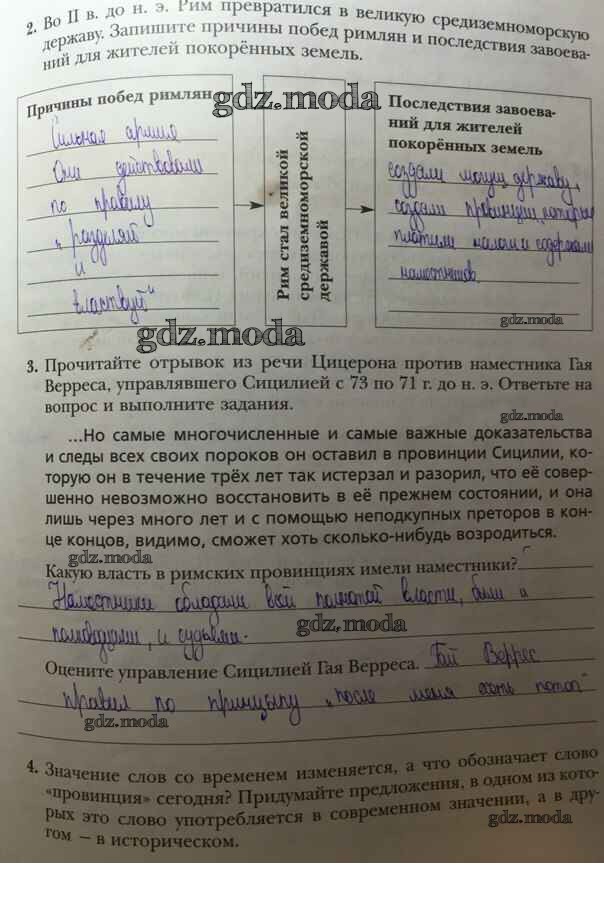 2. Во II в. до н. э. Рим превратился в великую средиземноморскую
державу. Запишите причины побед римлян и последствия завоева-
ний для жителей покорённых земель.
Причины побед римлян
gdz.moda
Сильная армия
Они действовали
по правилу
„разделяй
и
властвуй"
Рим стал великой
средиземноморской
державой
Последствия завоева-
ний для жителей
покорённых земель
создали могущ державу,
создали провинции, которые
платили налоги и содержали
наместников.
gdz.moda
gdz.moda
3. Прочитайте отрывок из речи Цицерона против наместника Гая
Верреса, управлявшего Сицилией с 73 по 71 г. до н. э. Ответьте на
вопрос и выполните задания.
gdz.moda
...Но самые многочисленные и самые важные доказательства
и следы всех своих пороков он оставил в провинции Сицилии, ко-
торую он в течение трёх лет так истерзал и разорил, что её совер-
шенно невозможно восстановить в её прежнем состоянии, и она
лишь через много лет и с помощью неподкупных преторов в кон-
це концов, видимо, сможет хоть сколько-нибудь возродиться.
gdz.moda
Какую власть в римских провинциях имели наместники?
Наместники обладали всей полнотой власти, были и
полководцами, и судьями.
gdz.moda
Оцените управление Сицилией Гая Верреса. Гай Веррес
правил по принципу „после меня хоть потоп"
gdz.moda
4. Значение слов со временем изменяется, а что обозначает слово
«провинция» сегодня? Придумайте предложения, в одном из кото-
рых это слово употребляется в современном значении, а в дру-
гом – в историческом.
gdz.moda